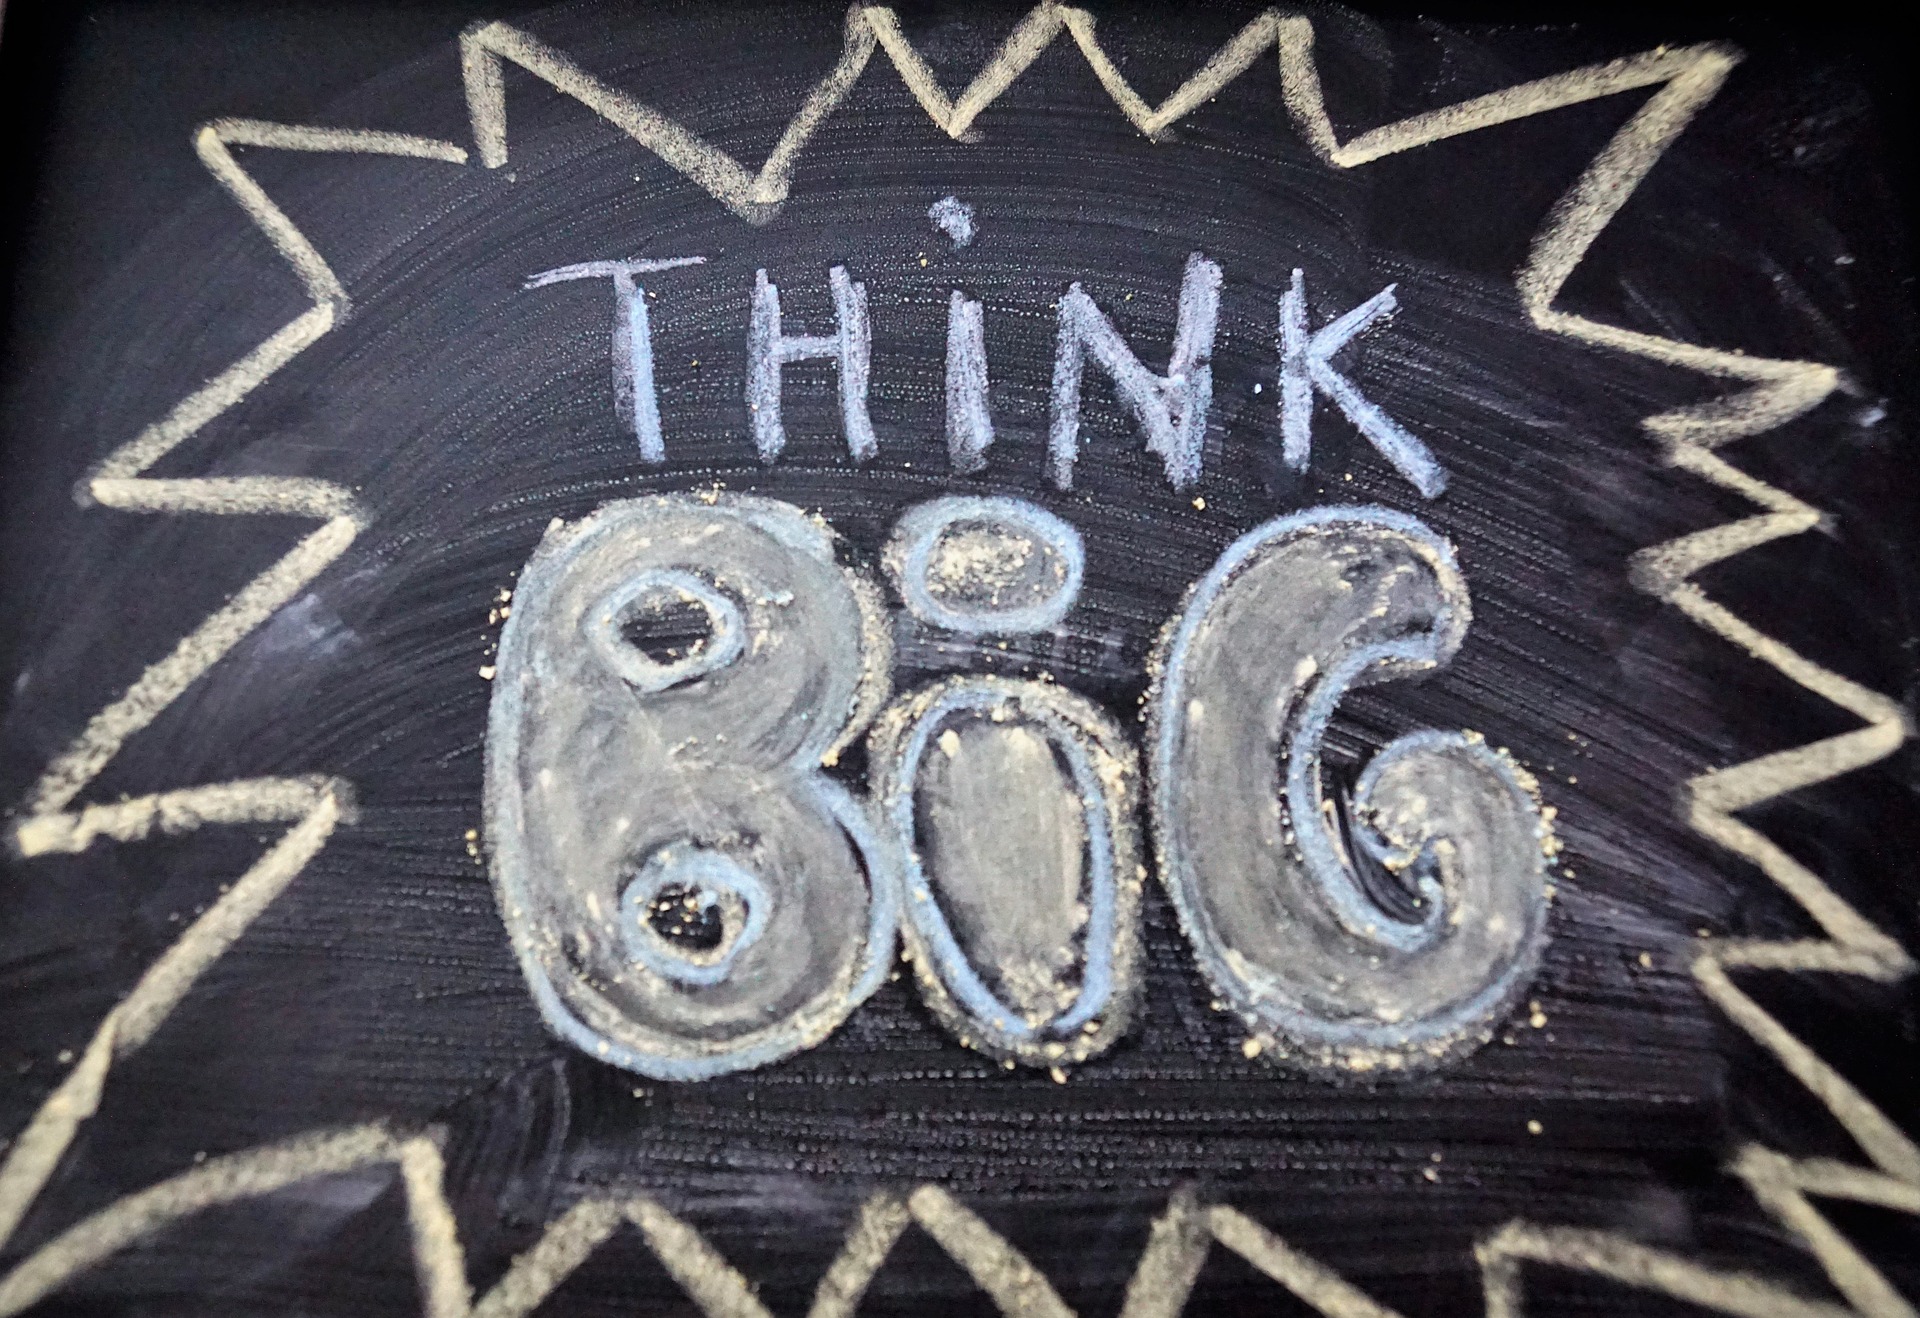 THiNK
BiG